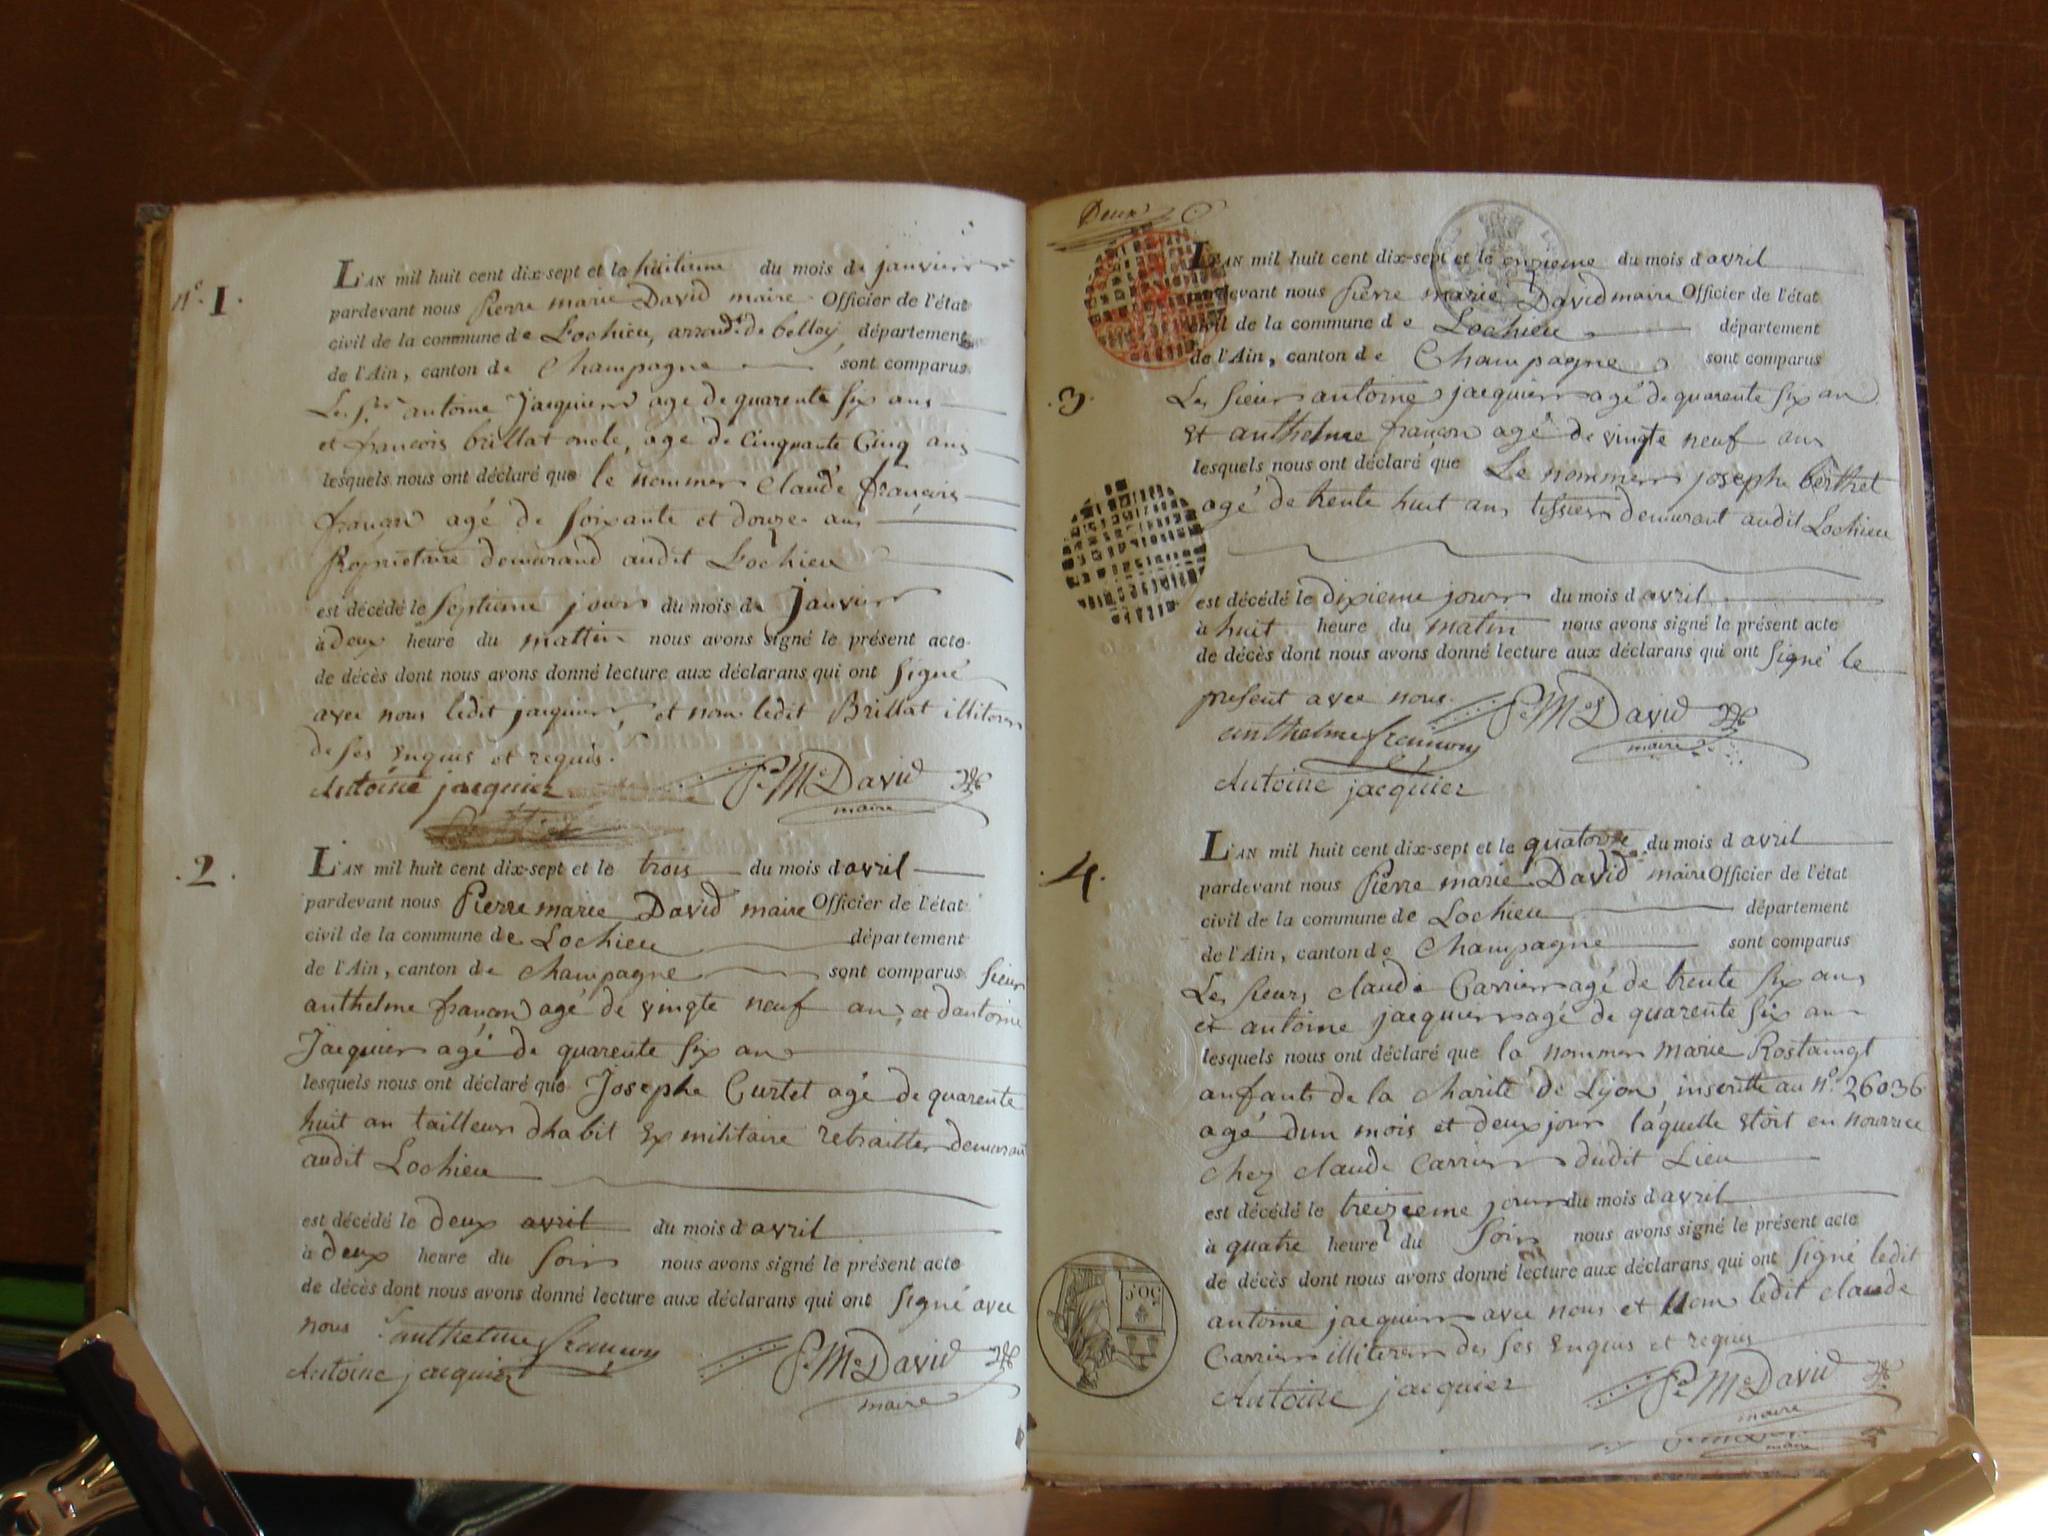 n.º 1.
L'AN mil huit cent dix-sept et le huitieme du mois de janvier
pardevant nous Pierre marie David maire Officier de l'état
civil de la commune de Lochieu, arrond.t de belley, département
de l'Ain, canton de Champagne sont comparus
Les s.rs antoine Jacquier agé de quarente six ans
et françois brillat oncle, agé de Cinquante Cinq ans
lesquels nous ont déclaré que le nommer Claude françois
françon agé de soixante et douze ans
Propriétaire demurand audit Lochieu
est décédé le septieme jour du mois de Janvier
à deux heure du mattin nous avons signé le présent acte
de décès dont nous avons donné lecture aux déclarans qui ont signé
avec nous ledit jacquier, et non ledit Brillat illiterer
de ses enquis et requis.
Antoine jacquier P.e M.e David
maire
.2.
L'AN mil huit cent dix-sept et le trois du mois d avril
pardevant nous Pierre marie David maire Officier de l'état
civil de la commune de Lochieu département
de l'Ain, canton de champagne sont comparus sieur
anthelme françon agé de vingte neuf ans, et dantoine
Jacquier agé de quarente six an
lesquels nous ont déclaré que Josephe Curtet agé de quarente
huit an tailleur dhabit Ex militaire retraitter demurant
audit Lochieu
est décédé le deux avril du mois d avril
à deux heure du soir nous avons signé le présent acte
de décès dont nous avons donné lecture aux déclarans qui ont signé avec
nous anthelme françon
Antoine jacquier P.e M.e David
maire
Deux
L'AN mil huit cent dix-sept et le onzieme du mois d avril
pardevant nous Pierre marie David maire Officier de l'état
civil de la commune de Lochieu département
de l'Ain, canton de Champagne sont comparus
.3.
Les sieur antoine jacquier agé de quarente six an
et anthelme françon agé de vingte neuf an
lesquels nous ont déclaré que Le nommer josephe berthet
agé de trente huit ans tissier demurant audit Lochieu
est décédé le dixieme jour du mois d avril
à huit heure du matin nous avons signé le présent acte
de décès dont nous avons donné lecture aux déclarans qui ont signé le
present avec nous. P.e M.e David
anthelme françon maire
Antoine jacquier
.4.
L'AN mil huit cent dix-sept et le quatorze du mois d avril
pardevant nous Pierre marie David maire Officier de l'état
civil de la commune de Lochieu département
de l'Ain, canton de Champagne sont comparus
Les sieurs claude Carrier agé de trente six ans
et antoine jacquier agé de quarente six an
lesquels nous ont déclaré que la nommer marie Rostaingt
anfante de la charité de Lyon, inscritte au n.º 26036
agé dun mois et deux jour laquelle étoit en nourrice
chez claude Carrier dudit Lieu
est décédé le treizieme jour du mois d avril
à quatre heure du soir nous avons signé le présent acte
de décès dont nous avons donné lecture aux déclarans qui ont signé ledit
antoine jacquier avec nous et Non ledit claude
Carrier illiterer des ses enquis et requis
Antoine jacquier P.e M.e David
maire
maire
50C.